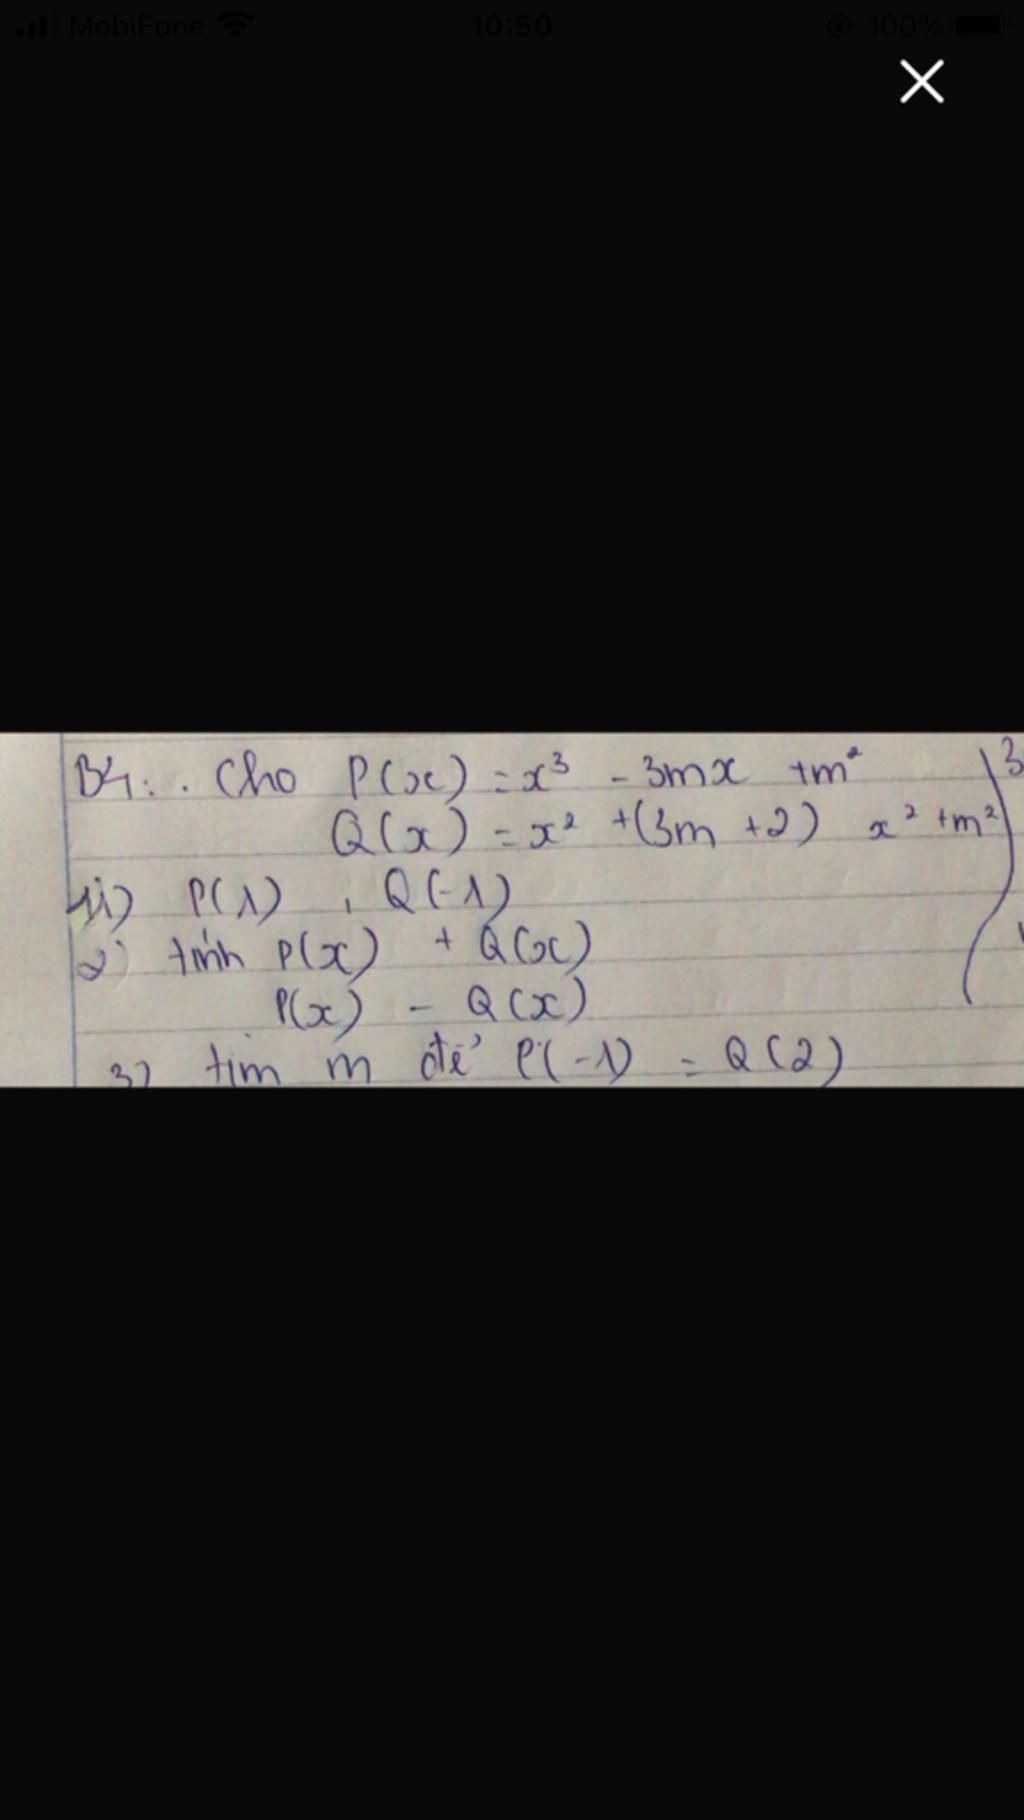 MobiFone 10:50 100%
B4: . Cho P(x) = x³ - 3mx + m²
Q(x) = x² + (3m + 2) x² + m²
1) P(1) , Q(-1)
2) tính P(x) + Q(x)
P(x) - Q(x)
3) tìm m để P(-1) = Q(2)
3